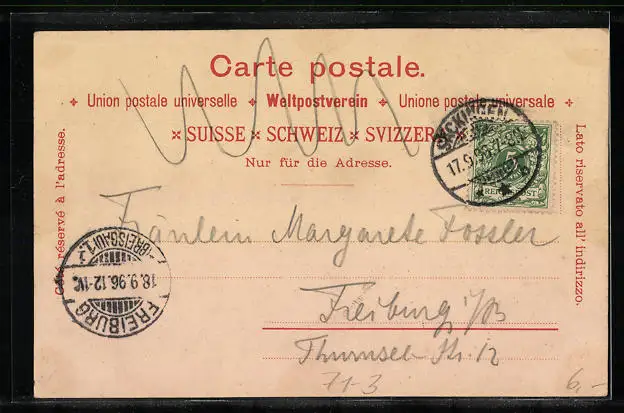 Carte postale.
Union postale universelle Weltpostverein Unione postale universale
SUISSE SCHWEIZ SVIZZERA
Nur für die Adresse.
Côté réservé à l'adresse.
Lato riservato all' indirizzo.
SÄCKINGEN
17.9.96.
REICHSPOST
FREIBURG
18.9.96.12-1V.
(BREISGAU) 1.
Fräulein Margarete Fossler
Freiburg i/B
Str. 12
71-3
6,-